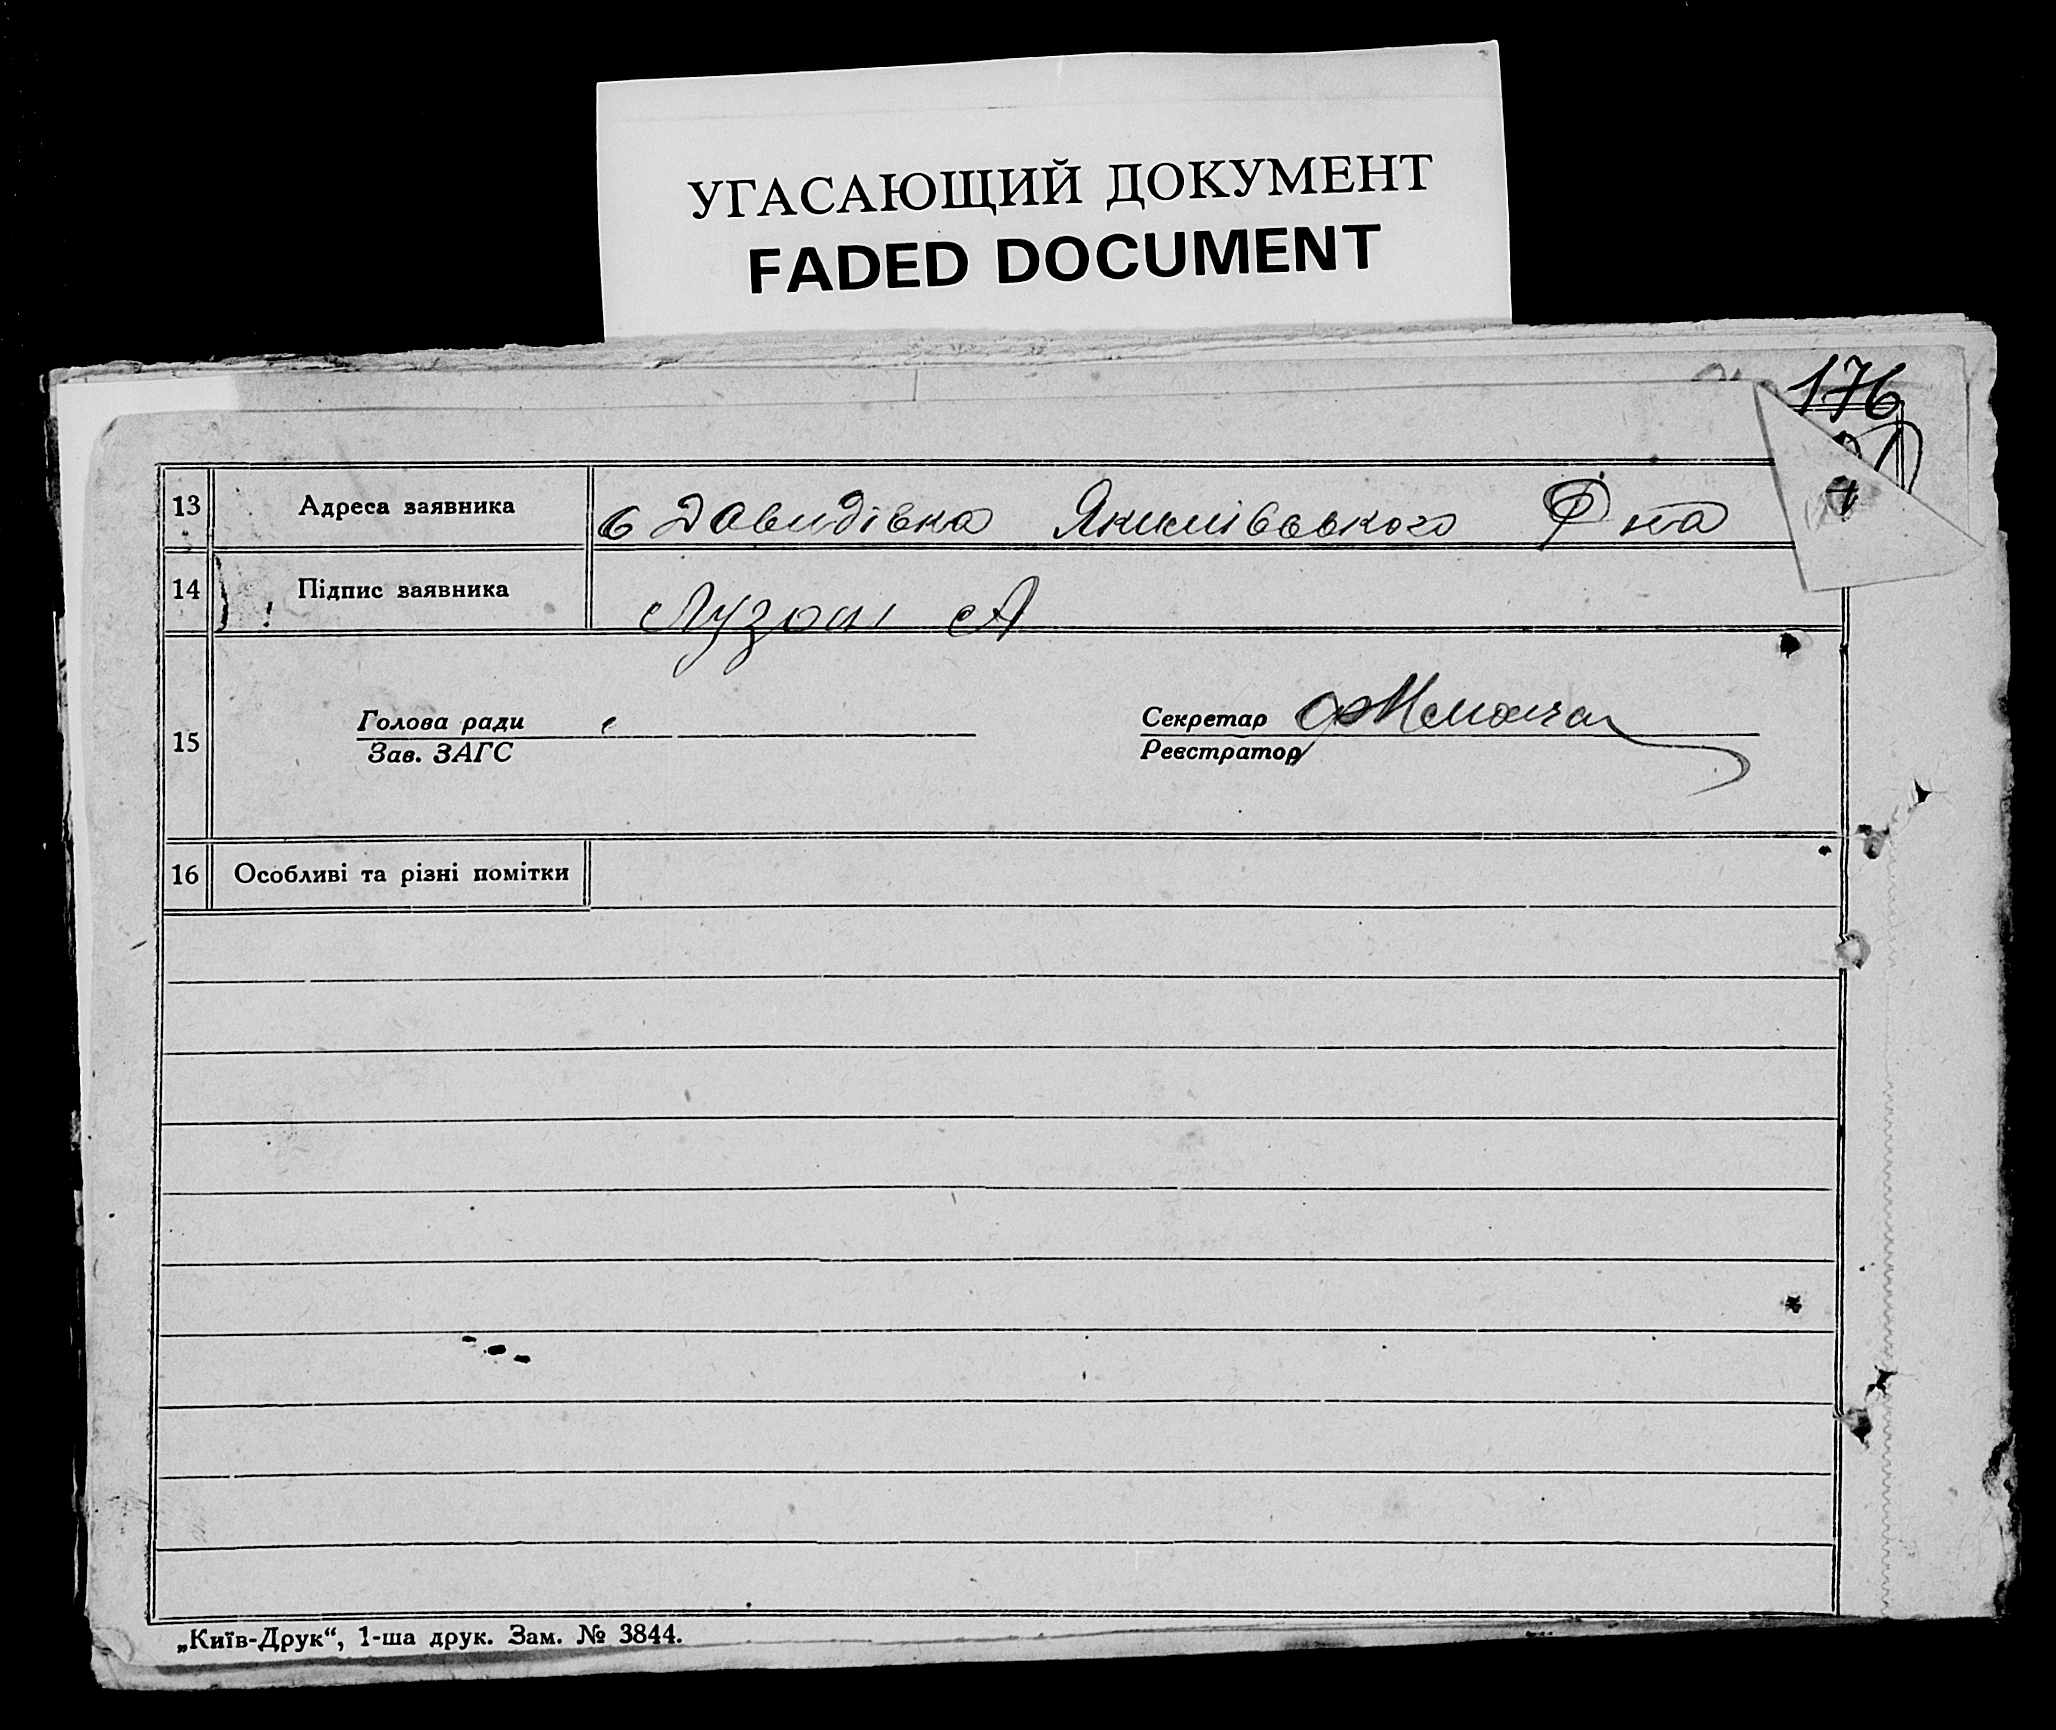 УГАСАЮЩИЙ ДОКУМЕНТ
FADED DOCUMENT
176
13 Адреса заявника с Давидівка Якимівського Р на
14 Підпис заявника Лузан А
15
Голова ради
Зав. ЗАГС
Секретар
Реєстратор
16 Особливі та різні помітки
„Київ-Друк“, 1-ша друк. Зам. № 3844.